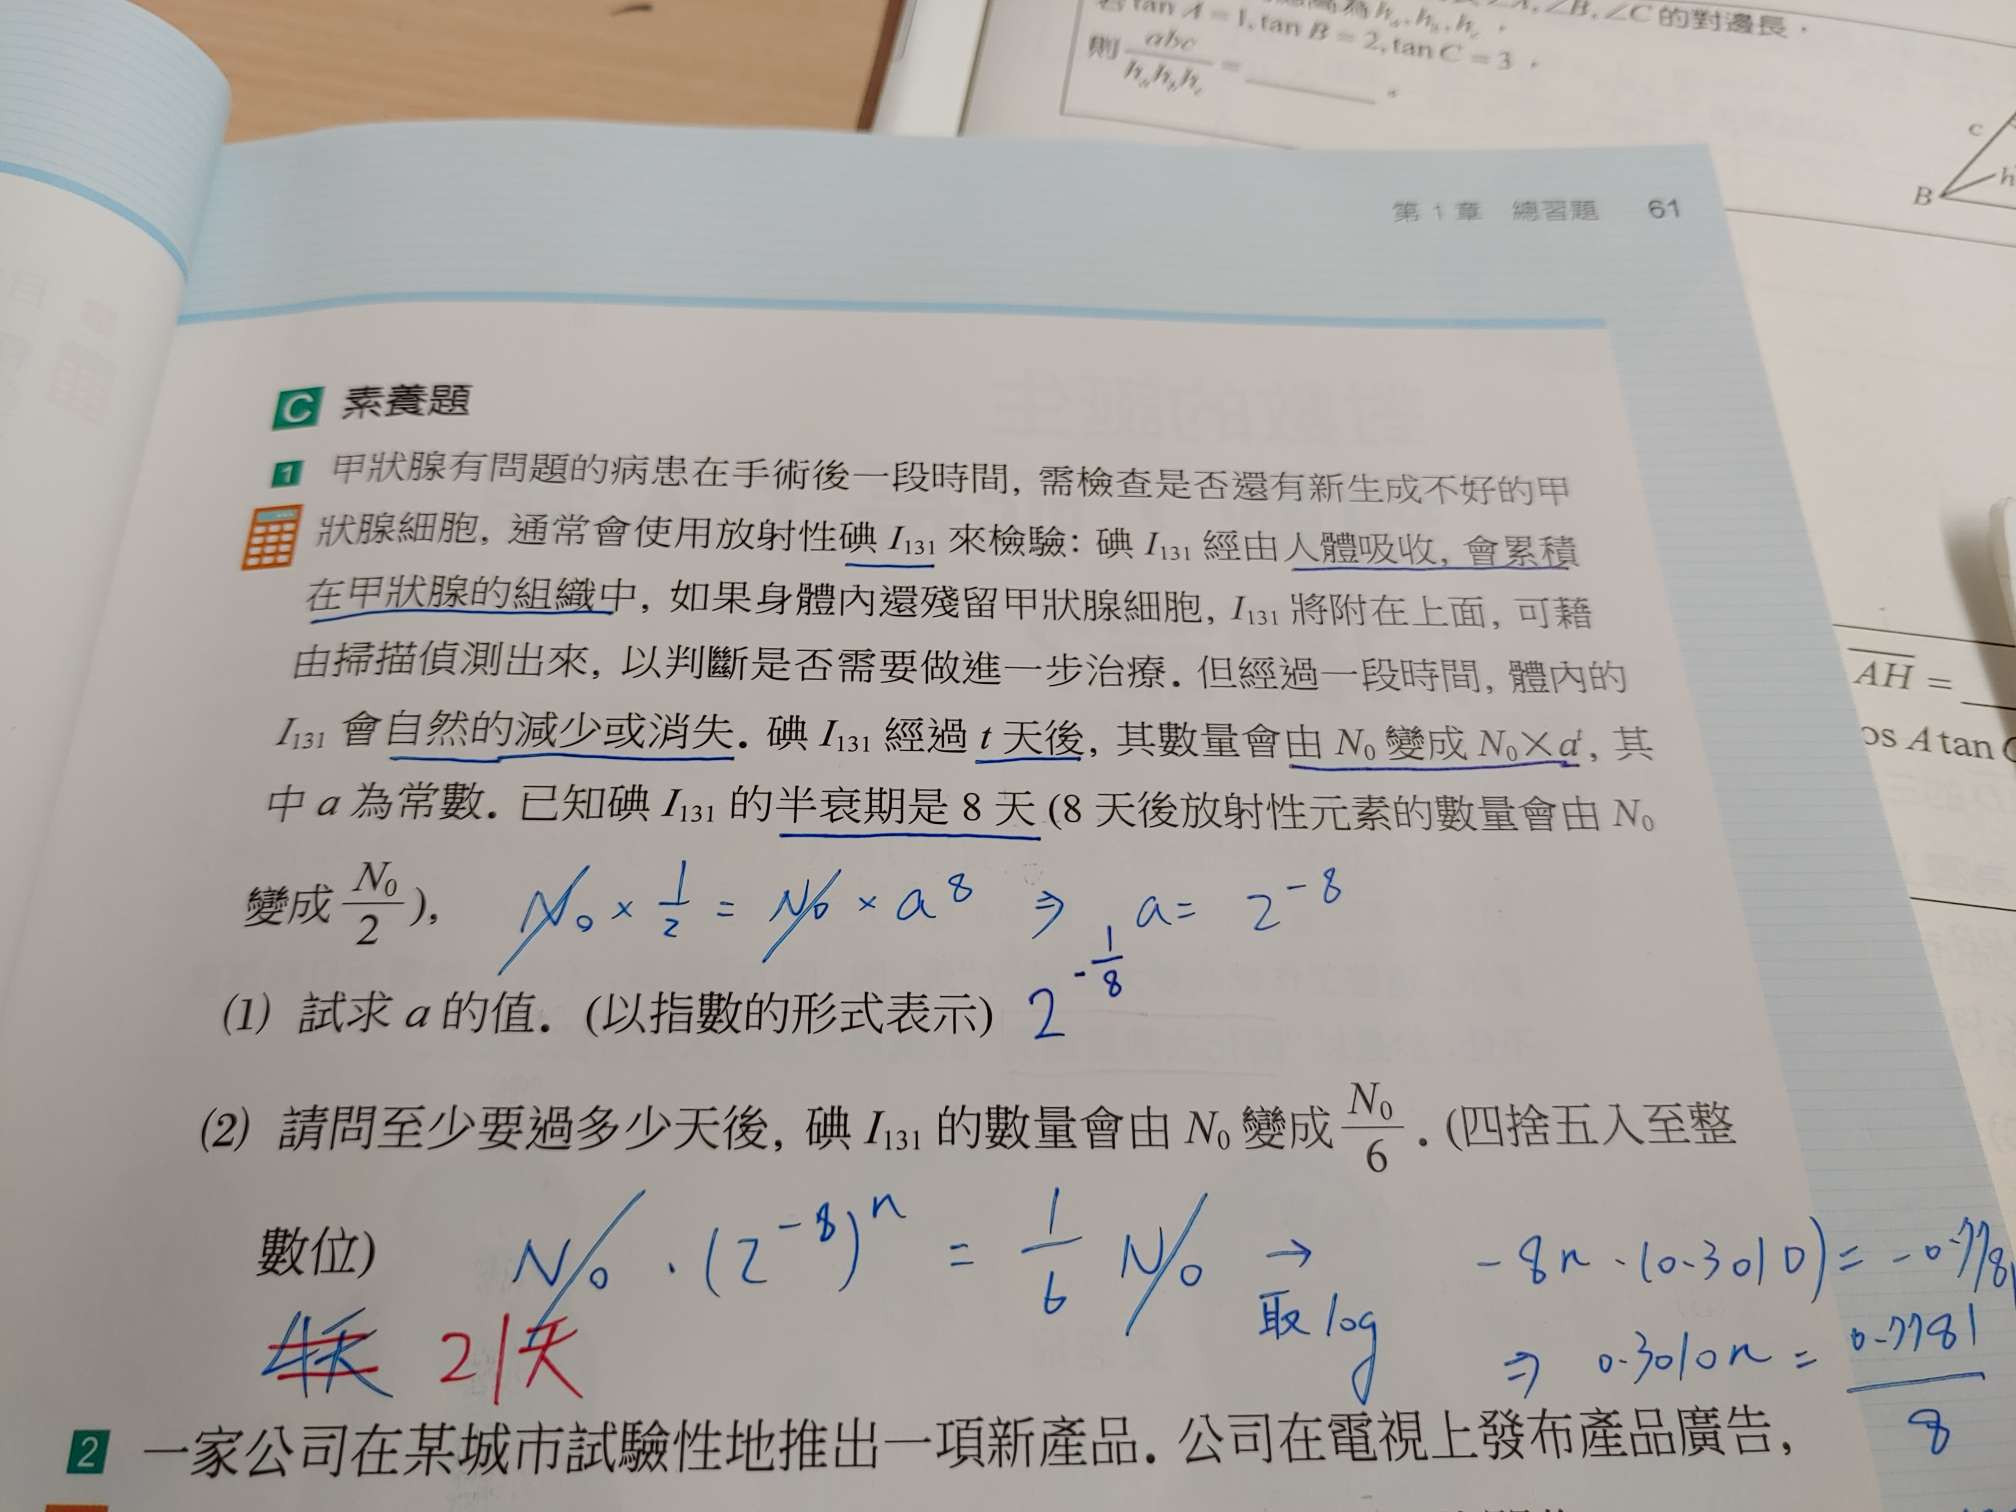 ∠B, ∠C 的對邊長，
若 tan A = 1, tan B = 2, tan C = 3，
則 abc / hahbhc = ______。
c
B
h
第 1 章 總習題 61
C 素養題
1 甲狀腺有問題的病患在手術後一段時間, 需檢查是否還有新生成不好的甲
狀腺細胞, 通常會使用放射性碘 I131 來檢驗: 碘 I131 經由人體吸收, 會累積
在甲狀腺的組織中, 如果身體內還殘留甲狀腺細胞, I131 將附在上面, 可藉
由掃描偵測出來, 以判斷是否需要做進一步治療. 但經過一段時間, 體內的
I131 會自然的減少或消失. 碘 I131 經過 t 天後, 其數量會由 N0 變成 N0×a^t, 其
中 a 為常數. 已知碘 I131 的半衰期是 8 天 (8 天後放射性元素的數量會由 N0
變成 N0/2), N0 × 1/2 = N0 × a^8 ⇒ a = 2^-8
(1) 試求 a 的值. (以指數的形式表示) 2^-1/8
(2) 請問至少要過多少天後, 碘 I131 的數量會由 N0 變成 N0/6. (四捨五入至整
數位) N0 · (2^-8)^n = 1/6 N0 → 取 log -8n · (0.3010) = -0.778
4天 21天 ⇒ 0.3010n = 0.7781/8
2 一家公司在某城市試驗性地推出一項新產品. 公司在電視上發布產品廣告,
AH =
os A tan